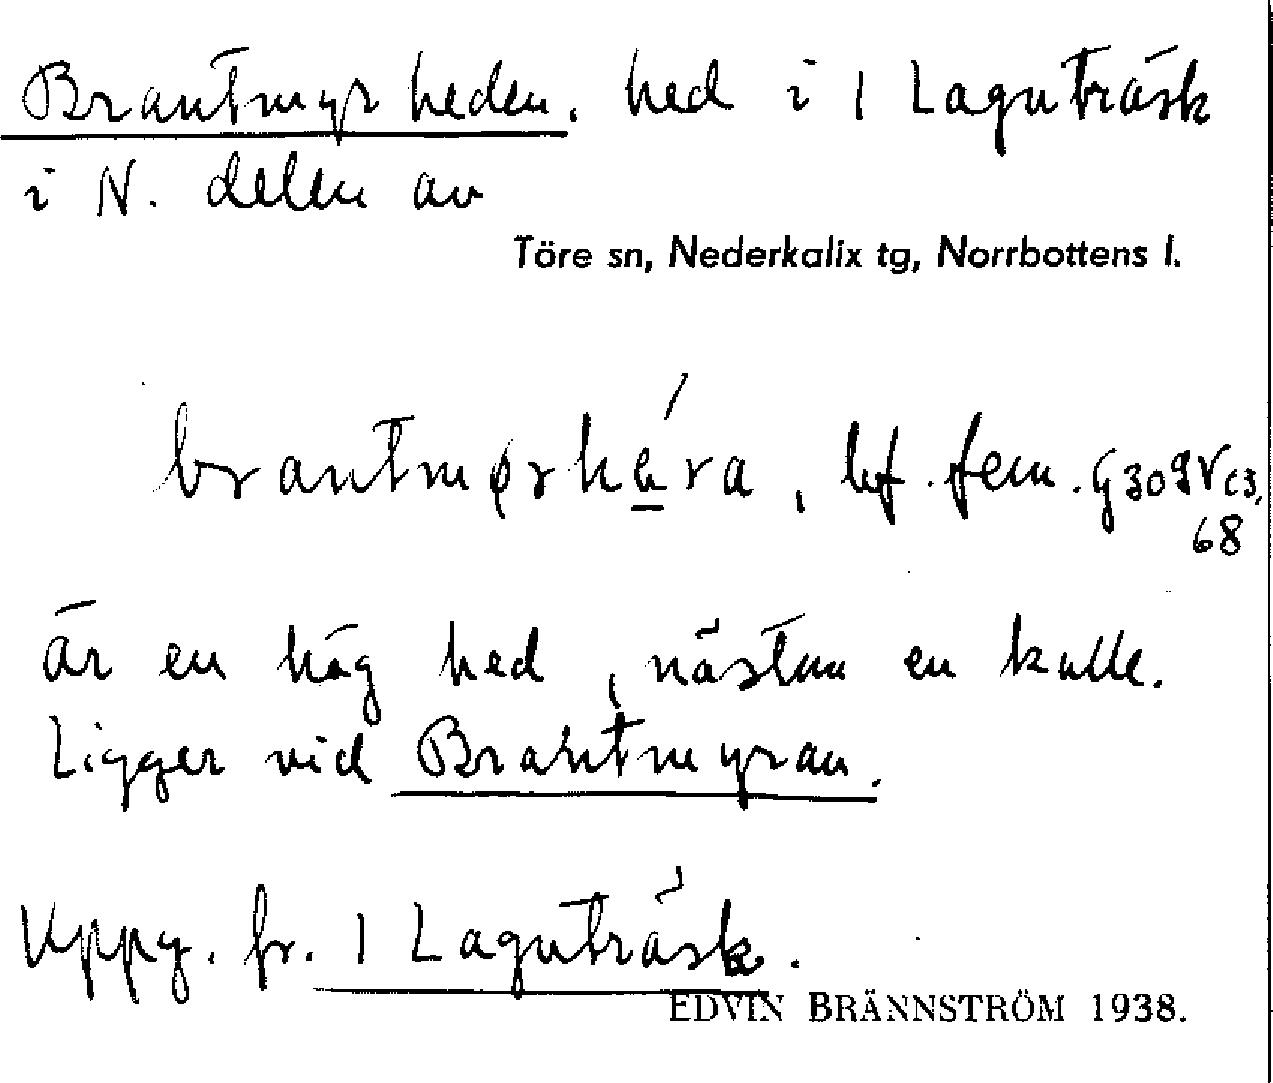 Brantmyrheden. hed i 1 Lagnträsk
i N. delen av
Töre sn, Nederkalix tg, Norrbottens l.
brantmørhéra, bf. fem.
68
är en hög hed, nästan en kulle.
Ligger vid Brantmyran.
Uppg. fr. 1 Lagnträsk.
EDVIN BRÄNNSTRÖM 1938.